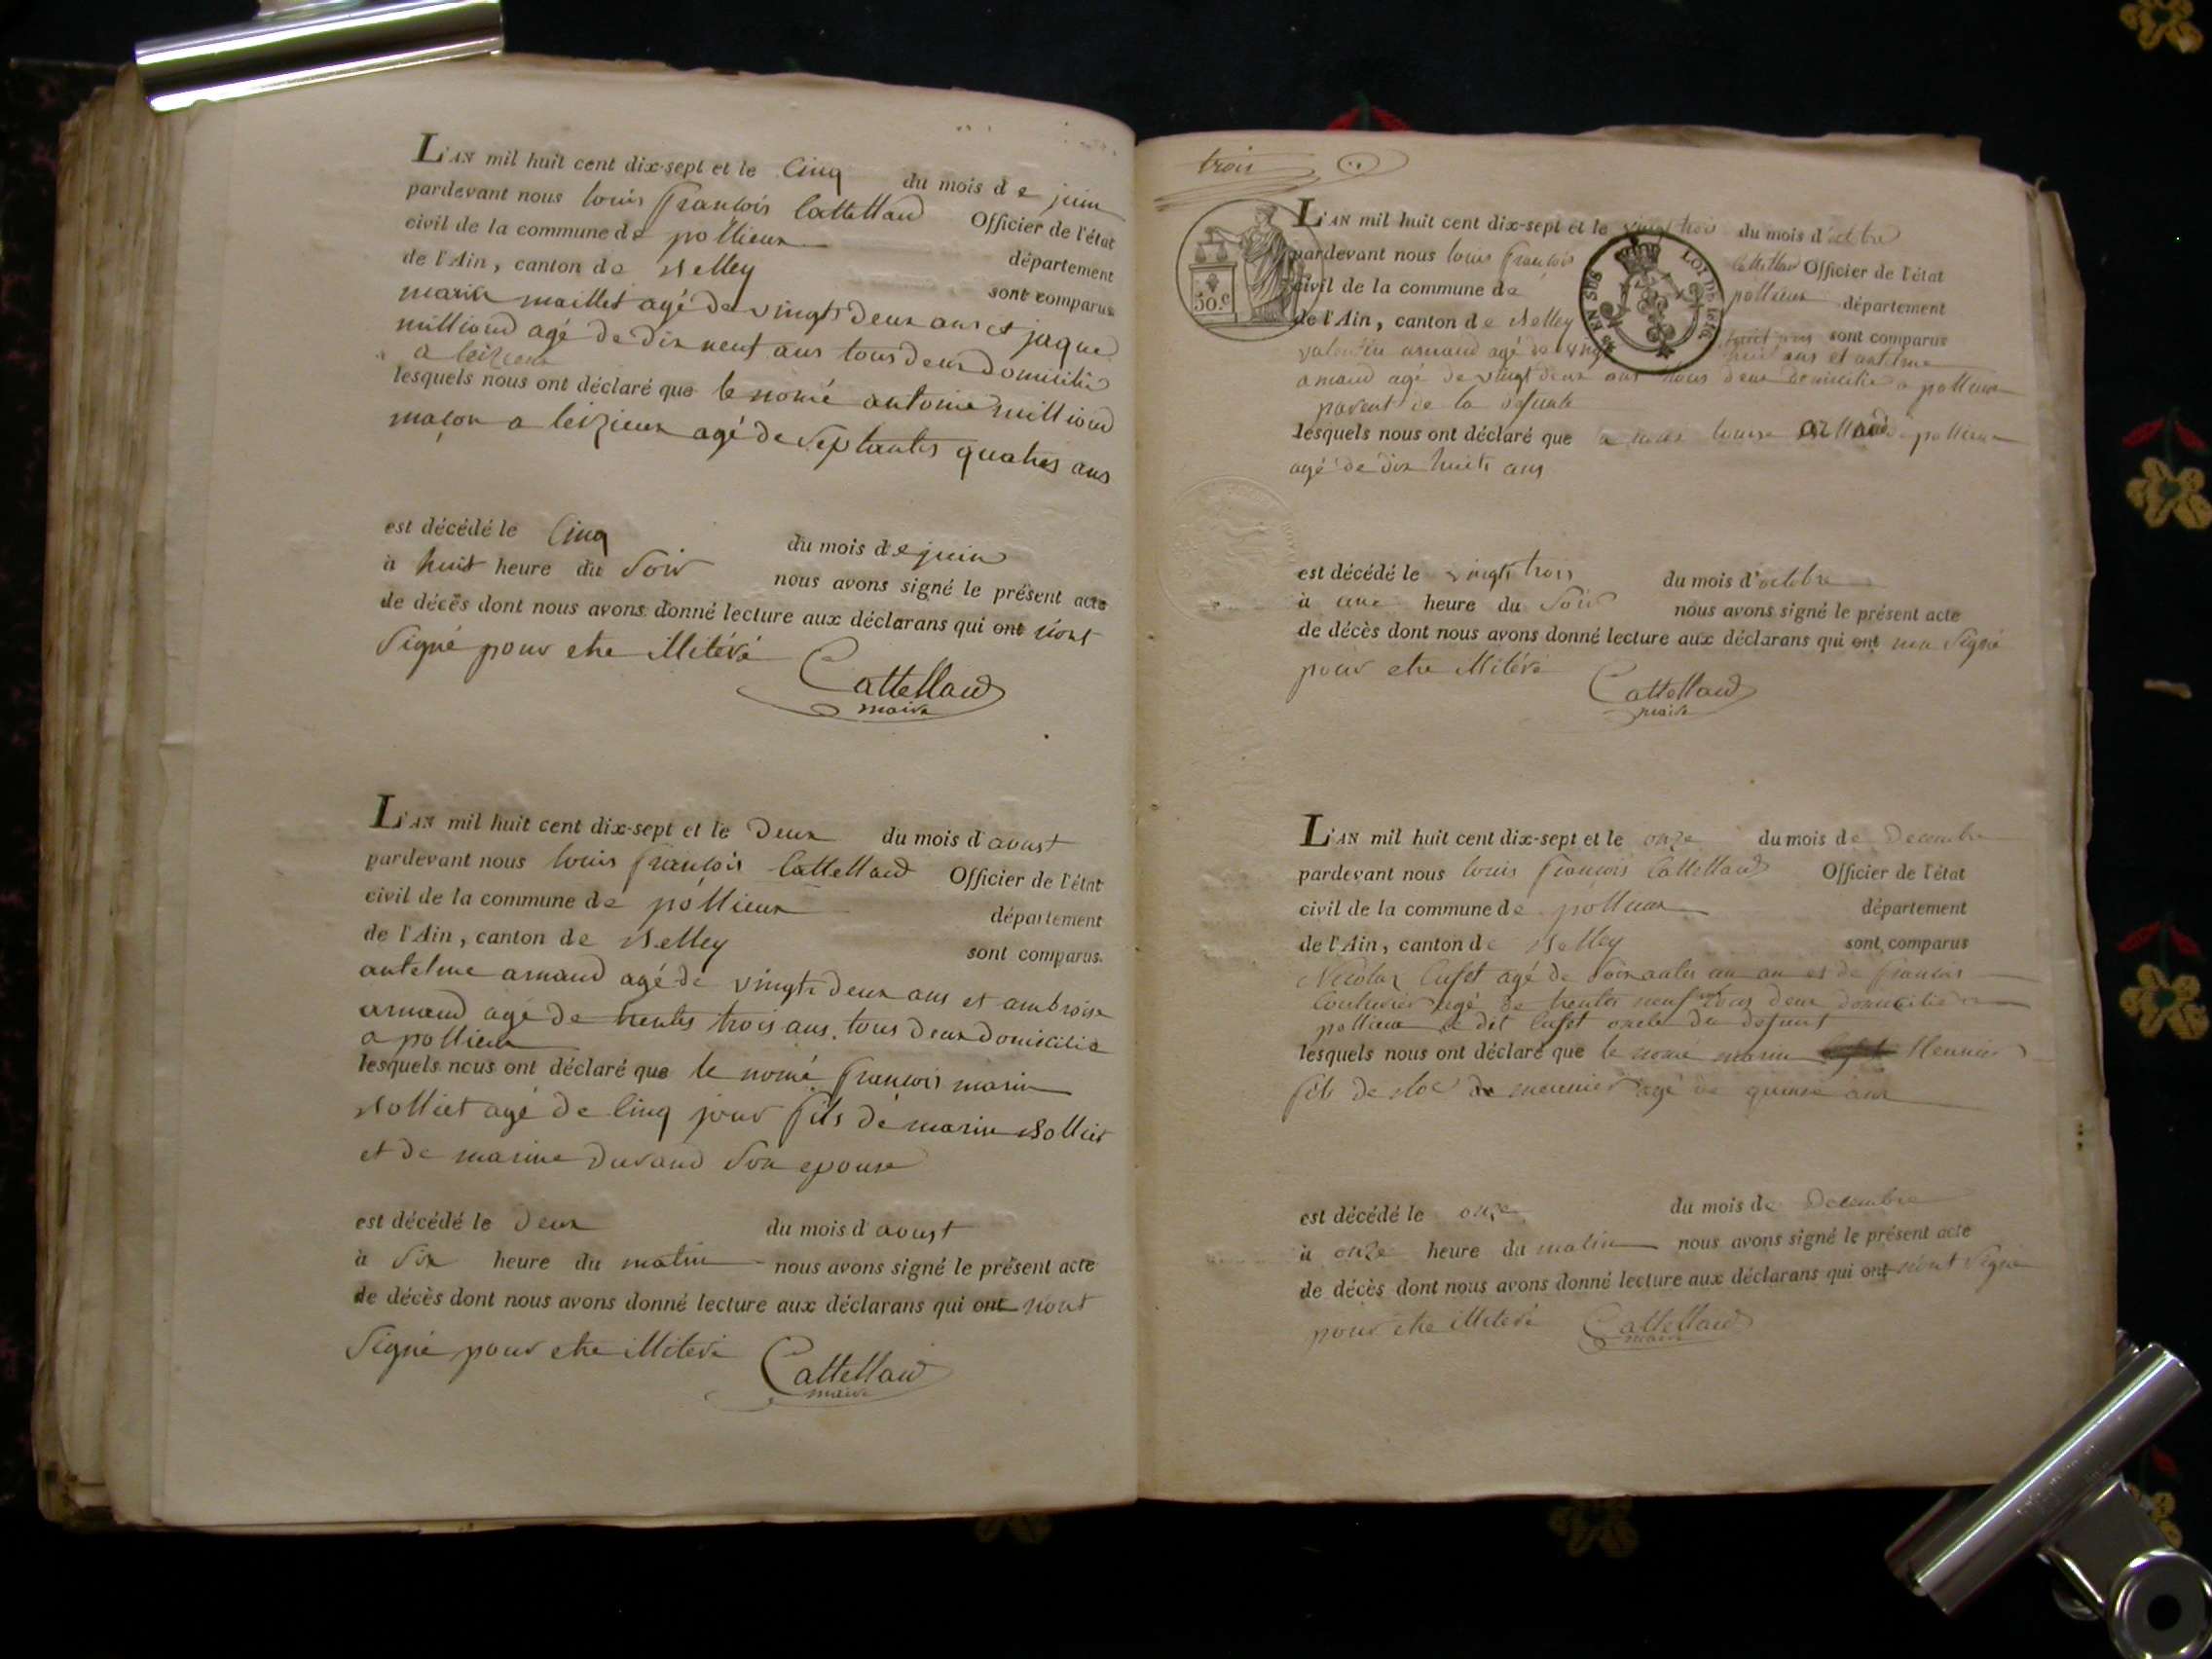 L'AN mil huit cent dix-sept et le Cinq du mois de juin
pardevant nous louis françois Cattelland Officier de l'état
civil de la commune de pollieux département
de l'Ain, canton de Belley sont comparus
marin maillet agé de vingts deux ans et jaque
milliand agé de dix neuf ans tous deux domicilié
a leizieux
lesquels nous ont déclaré que le nomé antoine milliand
maçon a leizieux agé de septantes quatres ans
est décédé le Cinq du mois de juin
à huit heure du Soir nous avons signé le présent acte
de décès dont nous avons donné lecture aux déclarans qui ont n'ont
Signé pour etre illitéré
Cattelland
maire
L'AN mil huit cent dix-sept et le Deux du mois d'aoust
pardevant nous louis françois Cattelland Officier de l'état
civil de la commune de pollieux département
de l'Ain, canton de Belley sont comparus
antelme arnaud agé de vingts deux ans et ambroise
arnaud agé de trentes trois ans, tous deux domicilié
a pollieux
lesquels nous ont déclaré que le nomé françois marin
Bolliet agé de Cinq jour fils de marin Bolliet
et de marine Durand Son epouse
est décédé le Deux du mois d'aoust
à Six heure du matin nous avons signé le présent acte
de décès dont nous avons donné lecture aux déclarans qui ont n'ont
Signé pour etre illitéré
Cattelland
maire
trois
50.c
EN SUS
LOI DE
L'AN mil huit cent dix-sept et le vingt trois du mois d'octobre
pardevant nous louis françois Cattelland Officier de l'état
civil de la commune de pollieux département
de l'Ain, canton de Belley sont comparus
valentin arnaud agé de vingt huit ans et antelme
arnaud agé de vingt deux ans tous deux domicilié a pollieux
parent de la defunte
lesquels nous ont déclaré que louise pollieux
agé de dix huits ans
est décédé le vingts trois du mois d'octobre
à une heure du Soir nous avons signé le présent acte
de décès dont nous avons donné lecture aux déclarans qui ont non Signé
pour etre illitéré
Cattelland
maire
L'AN mil huit cent dix-sept et le onze du mois de Decembre
pardevant nous louis françois Cattelland Officier de l'état
civil de la commune de pollieux département
de l'Ain, canton de Belley sont comparus
Nicolas Cufet agé de Soixantes un an et de françois
Couturier agé de trentes neuf tous deux domicilié a
pollieux le dit Cufet oncle du defunt
lesquels nous ont déclaré que le nomé marin Meunier
fils de de meunier agé de quinse ans
est décédé le onze du mois de Decembre
à onze heure du matin nous avons signé le présent acte
de décès dont nous avons donné lecture aux déclarans qui ont n'ont Signé
pour etre illitéré
Cattelland
maire